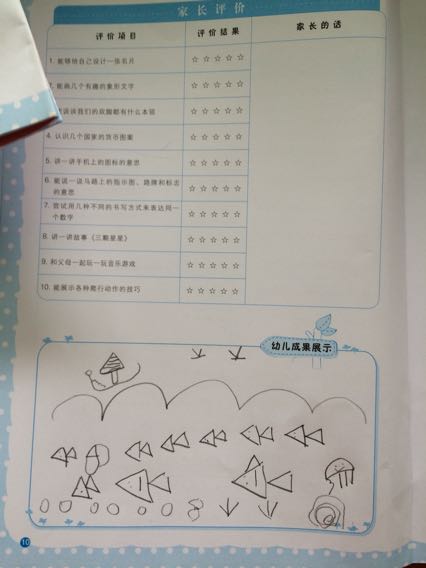 家长评价
评价项目 评价结果 家长的话
1. 能够给自己设计一张名片 ☆☆☆☆☆
能画几个有趣的象形文字 ☆☆☆☆☆
说说我们的双脚都有什么本领 ☆☆☆☆☆
4. 认识几个国家的货币图案 ☆☆☆☆☆
5. 讲一讲手机上的图标的意思 ☆☆☆☆☆
6. 能说一说马路上的指示图、路牌和标志
的意思 ☆☆☆☆☆
7. 尝试用几种不同的书写方式来表达同一
个数字 ☆☆☆☆☆
8. 讲一讲故事《三颗星星》 ☆☆☆☆☆
9. 和父母一起玩一玩音乐游戏 ☆☆☆☆☆
10. 能展示各种爬行动作的技巧 ☆☆☆☆☆
幼儿成果展示
10